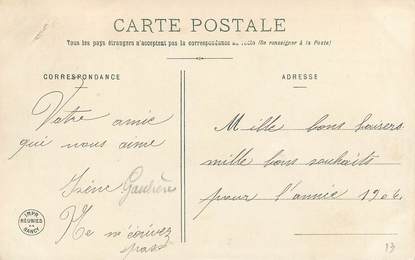 CARTE POSTALE
Tous les pays étrangers n'acceptent pas la correspondance au recto (Se renseigner à la Poste)
CORRESPONDANCE
Votre amie
qui vous aime
Irène Gautière
Ne m'écrivez
pas
ADRESSE
Mille bons baisers
mille bons souhaits
pour l'année 1904.
IMPR.
RÉUNIES
DE
NANCY
13